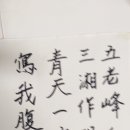 五老峰
三湘作
青天一
寫我腹